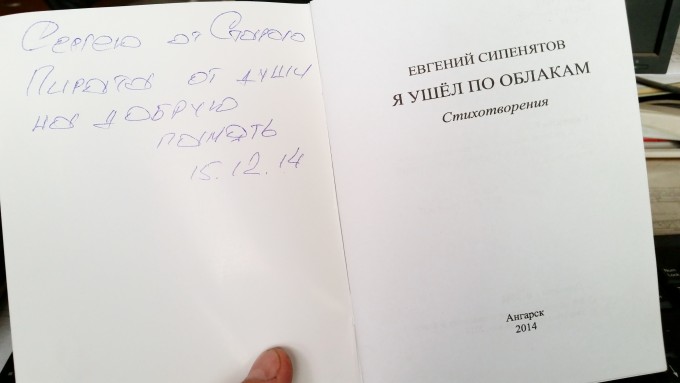 Сергею от Старого
Пирата от души
на добрую
память
15.12.14
ЕВГЕНИЙ СИПЕНЯТОВ
Я УШЁЛ ПО ОБЛАКАМ
Стихотворения
Ангарск
2014